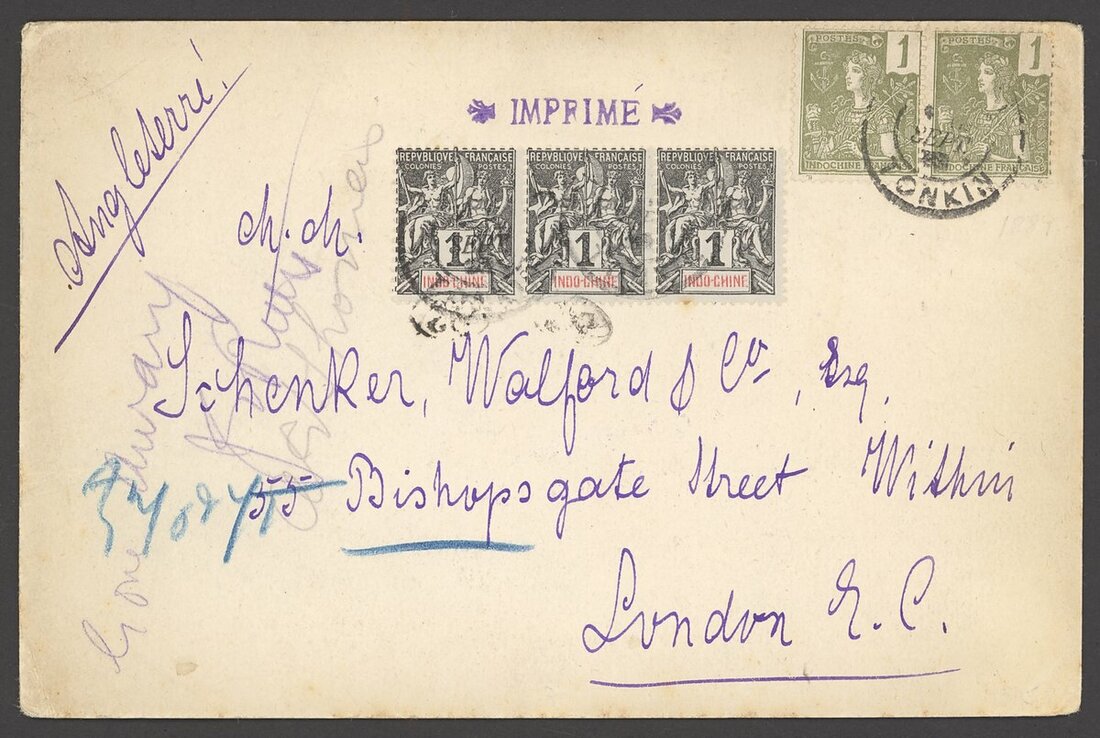 Angleterre.
IMPRIMÉ
POSTES 1
INDOCHINE FRANÇAISE
POSTES 1
INDOCHINE FRANÇAISE
TONKIN
REPVBLIQVE FRANÇAISE
COLONIES POSTES
1
INDO-CHINE
REPVBLIQVE FRANÇAISE
COLONIES POSTES
1
INDO-CHINE
REPVBLIQVE FRANÇAISE
COLONIES POSTES
1
INDO-CHINE
M. M.
Schenker, Walford & Co, Esq.
55 Bishopsgate Street Within
London E. C.